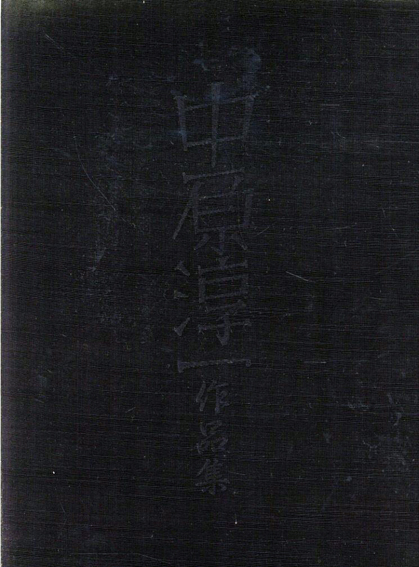 中原淳一作品集